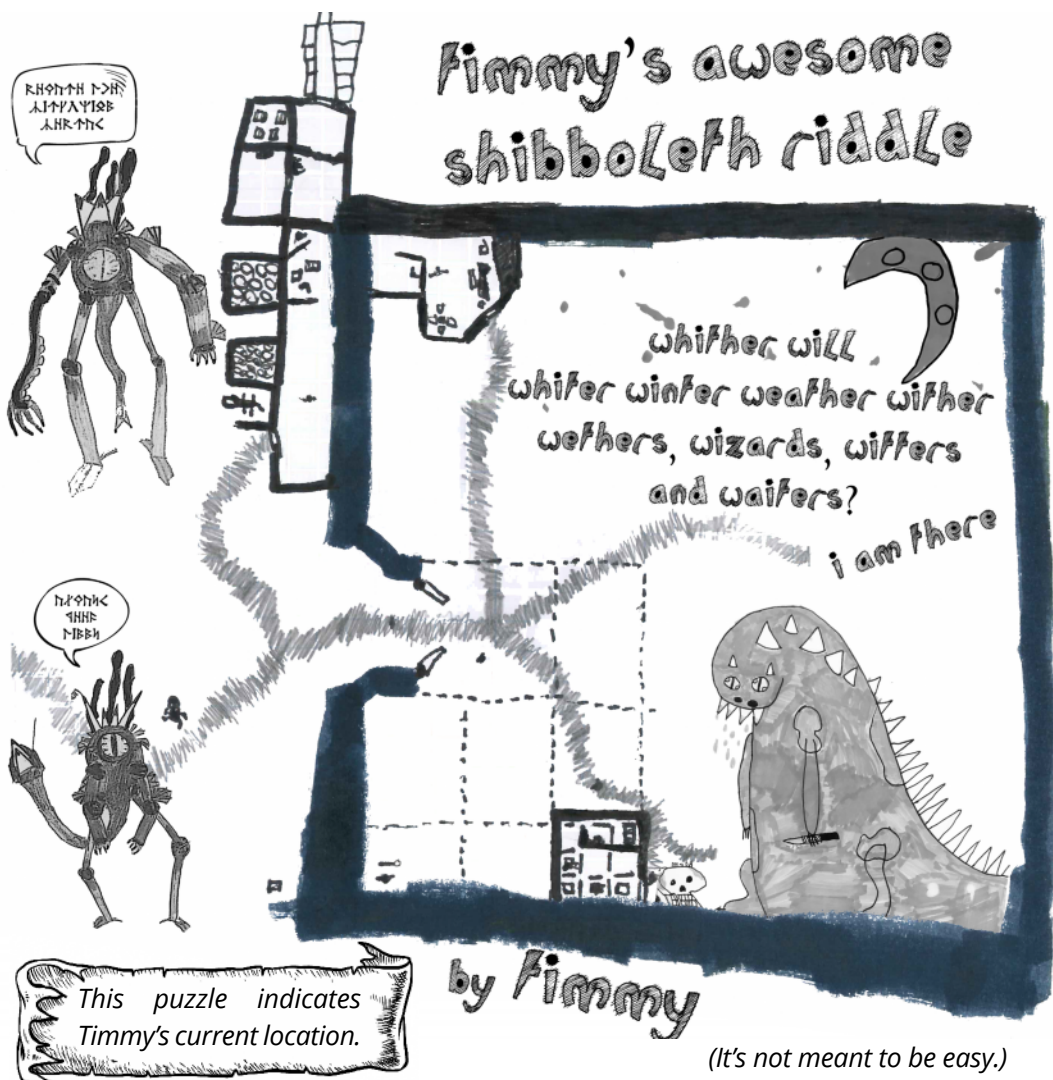 timmy's awesome
shibboleth riddle
whither will
whiter winter weather wither
wethers, wizards, witters
and waiters?
i am there
by timmy
This puzzle indicates
Timmy's current location.
(It's not meant to be easy.)